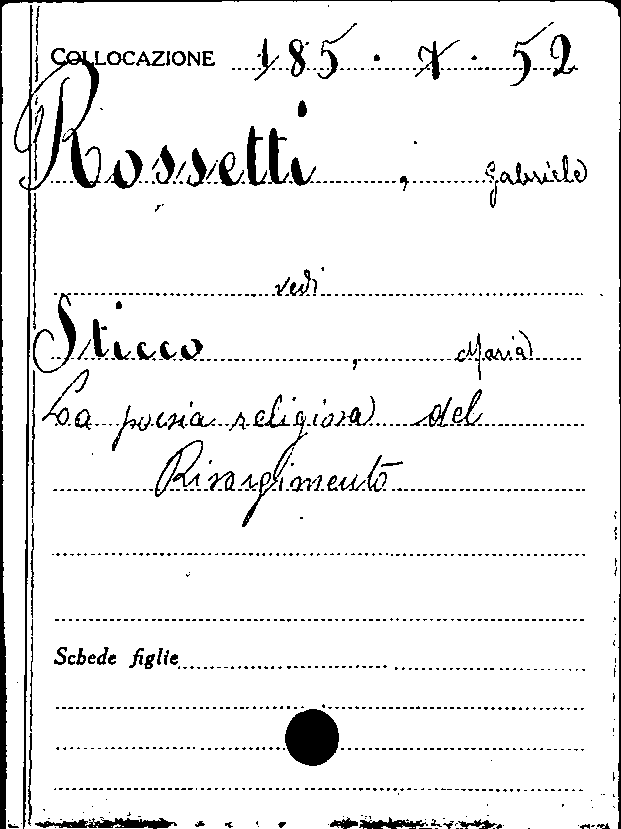 COLLOCAZIONE 185.X.52
Rossetti, Gabriele
vedi
Sticco, Maria
La poesia religiosa del
Risorgimento
Schede figlie